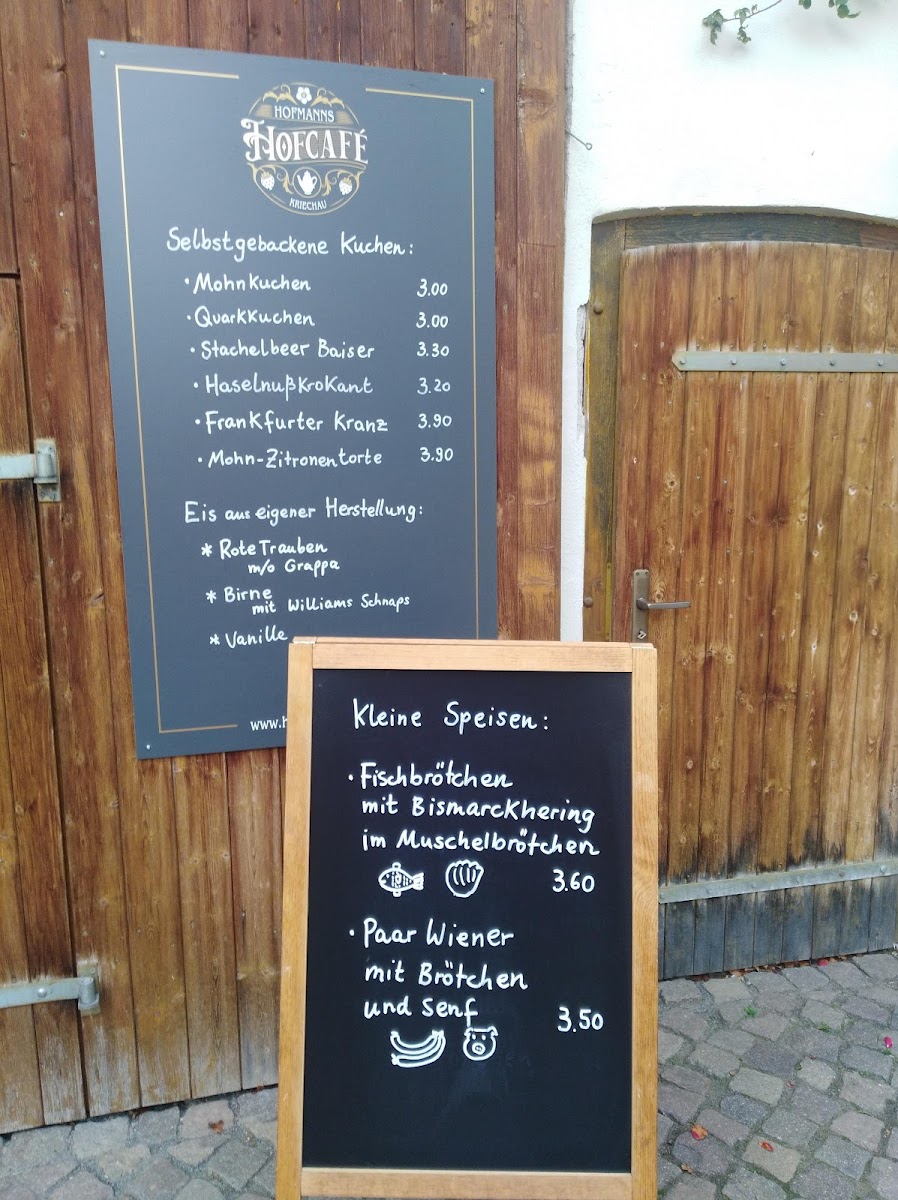 HOFMANNS
HOFCAFÉ
KRIECHAU
Selbstgebackene Kuchen:
• Mohnkuchen 3.00
• Quarkkuchen 3.00
• Stachelbeer Baiser 3.30
• Haselnußkrokant 3.20
• Frankfurter Kranz 3.90
• Mohn-Zitronentorte 3.90
Eis aus eigener Herstellung:
* Rote Trauben
m/o Grappa
* Birne
mit Williams Schnaps
* Vanille
www.h
Kleine Speisen:
• Fischbrötchen
mit Bismarckhering
im Muschelbrötchen
3.60
• Paar Wiener
mit Brötchen
und Senf
3.50